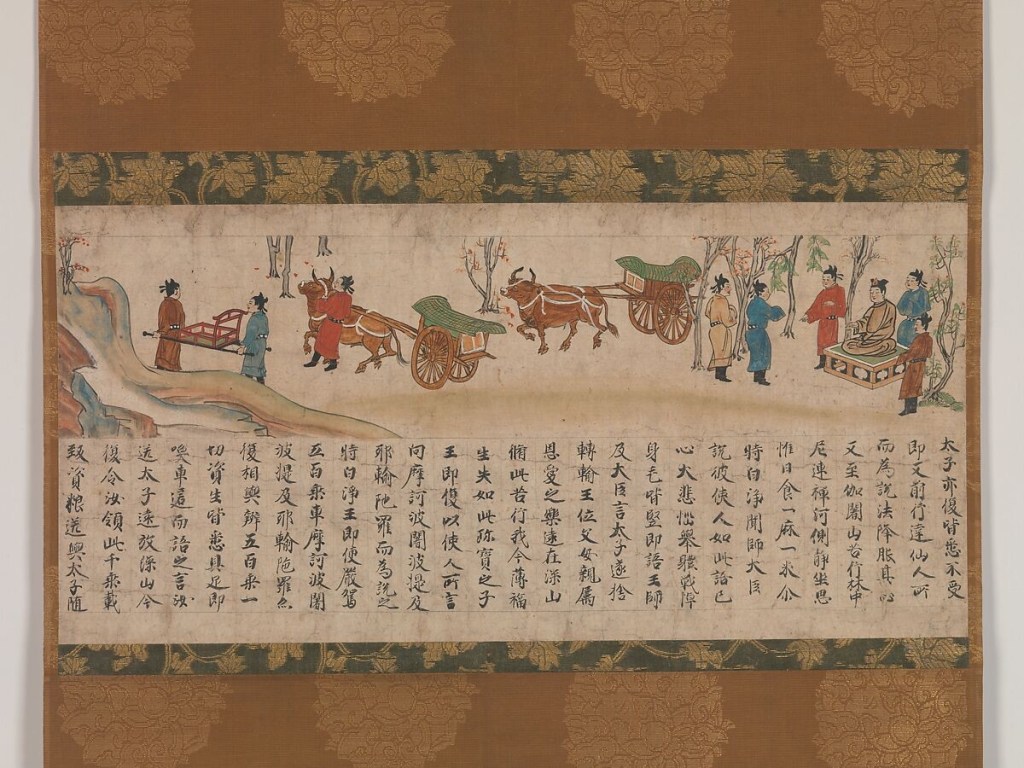 太子亦復皆悉不受
即又前行達仙人所
而為說法降胀其心
又至伽闍山苦行林中
尼連禪河側靜坐思
惟日食一麻一米尒
時白淨聞師大臣
說彼使人如此語已
心大悲惱舉體戰掉
身毛皆竪即語王師
及大臣言太子遂捨
轉輪王位父母親属
恩愛之樂遠在深山
脩此苦行我今薄福
生失如此珎寶之子
王即復以使人所言
向摩訶波闍波提及
耶輸陁羅而為說之
時白淨王即便嚴駕
五百乘車摩訶波闍
波提及耶輸陁羅亦
復相與辦五百乘一
切資生皆悉具足即
喚車匿而語之言汝
送太子遠放深山今
復令汝領此千乘載
致資粮送與太子隨